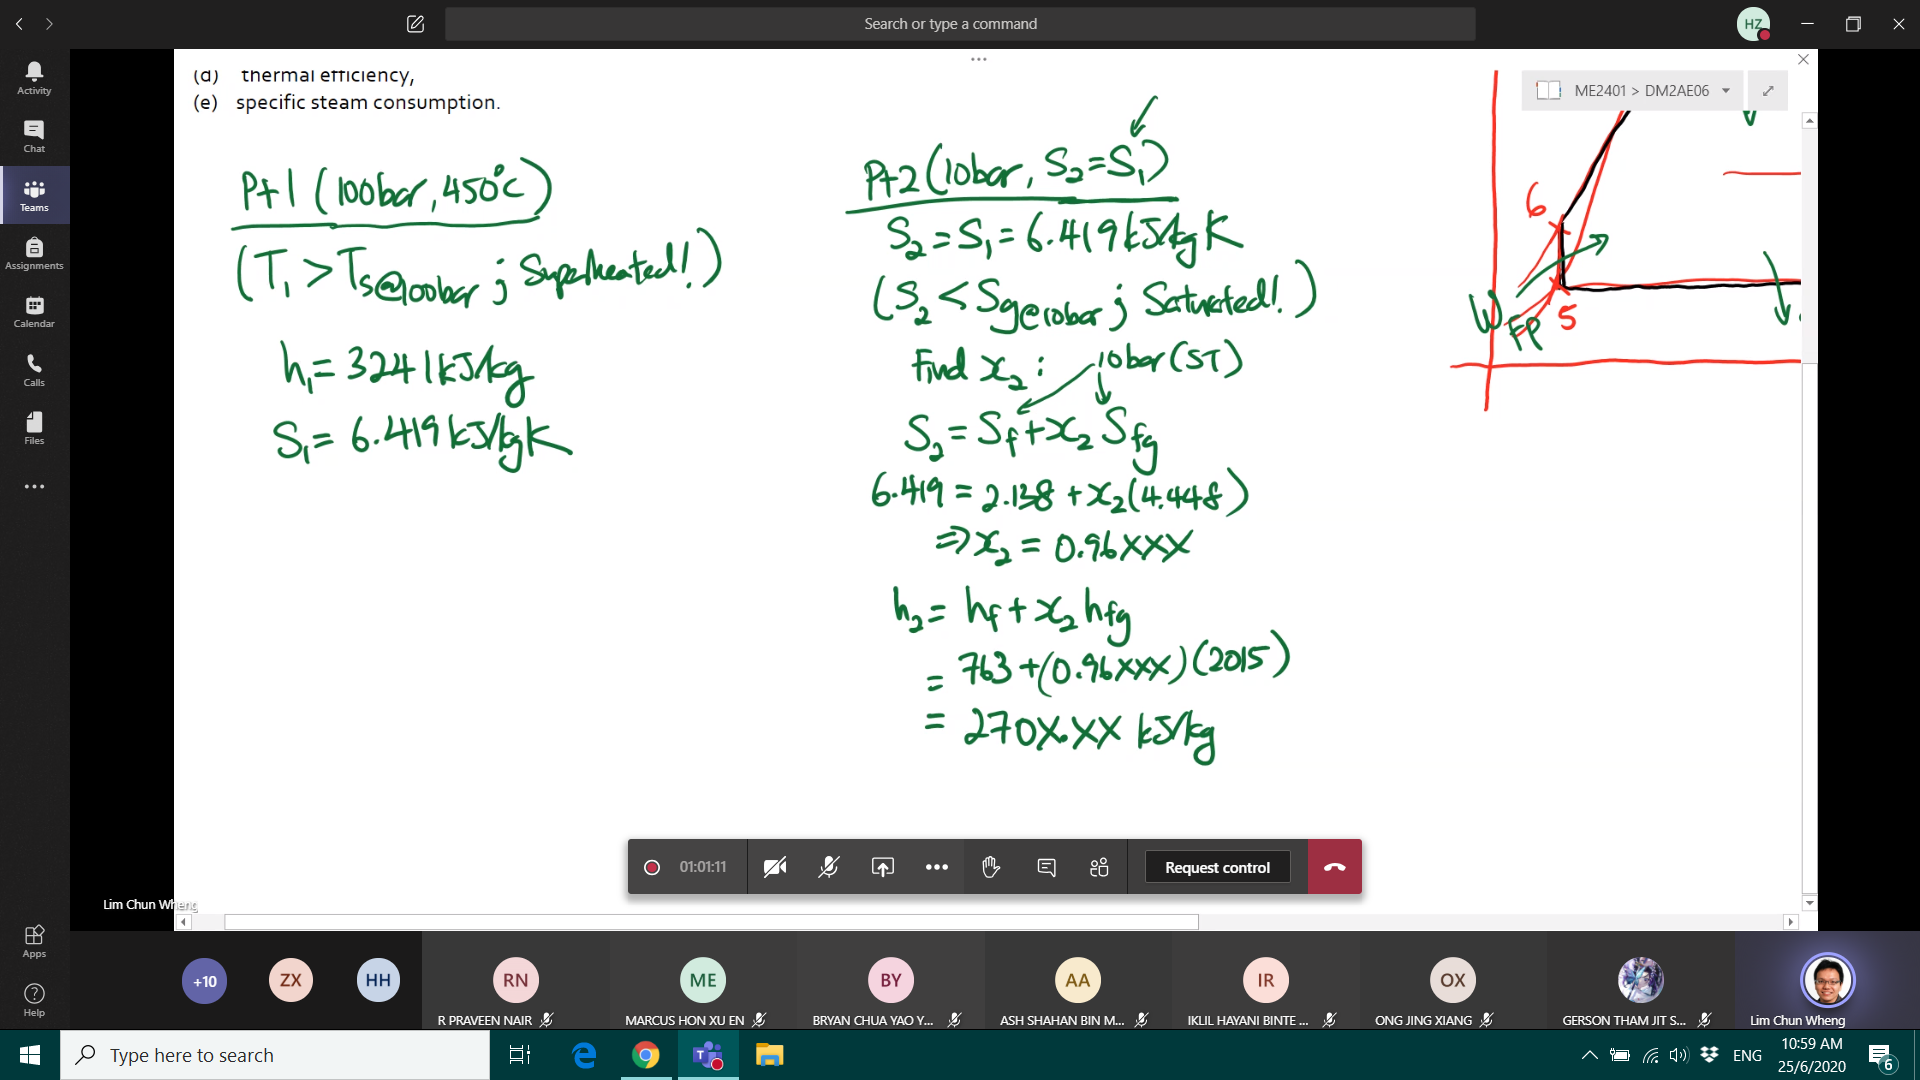 Search or type a command
HZ
Activity
Chat
Teams
Assignments
Calendar
Calls
Files
Apps
Help
(d) thermal efficiency,
(e) specific steam consumption.
ME2401 > DM2AE06
Pt1 (100bar, 450°C)
(T1 > Ts@100bar ; Superheated!)
h1 = 3241 kJ/kg
S1 = 6.419 kJ/kgK
Pt2 (10bar, S2=S1)
S2 = S1 = 6.419 kJ/kgK
(S2 < Sg@10bar ; Saturated!)
Find x2 : 10bar (ST)
S2 = Sf + x2 Sfg
6.419 = 2.138 + x2(4.448)
=> x2 = 0.96XXX
h2 = hf + x2 hfg
= 763 + (0.96XXX)(2015)
= 270X.XX kJ/kg
6
5
WFP
01:01:11
Request control
Lim Chun Wheng
+10
ZX
HH
RN
ME
BY
AA
IR
OX
R PRAVEEN NAIR
MARCUS HON XU EN
BRYAN CHUA YAO Y...
ASH SHAHAN BIN M...
IKLIL HAYANI BINTE ...
ONG JING XIANG
GERSON THAM JIT S...
Lim Chun Wheng
Type here to search
ENG
10:59 AM
25/6/2020
6